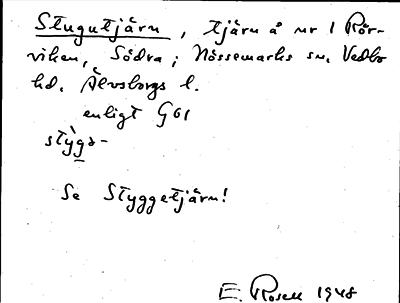 Stugutjärn, tjärn å nr 1 Rör-
viken, Södra; Nössemarks sn. Vedbo
hd. Älvsborgs l.
enligt G61
stỳgɔ-
Se Styggetjärn!
E. Rosell 1948